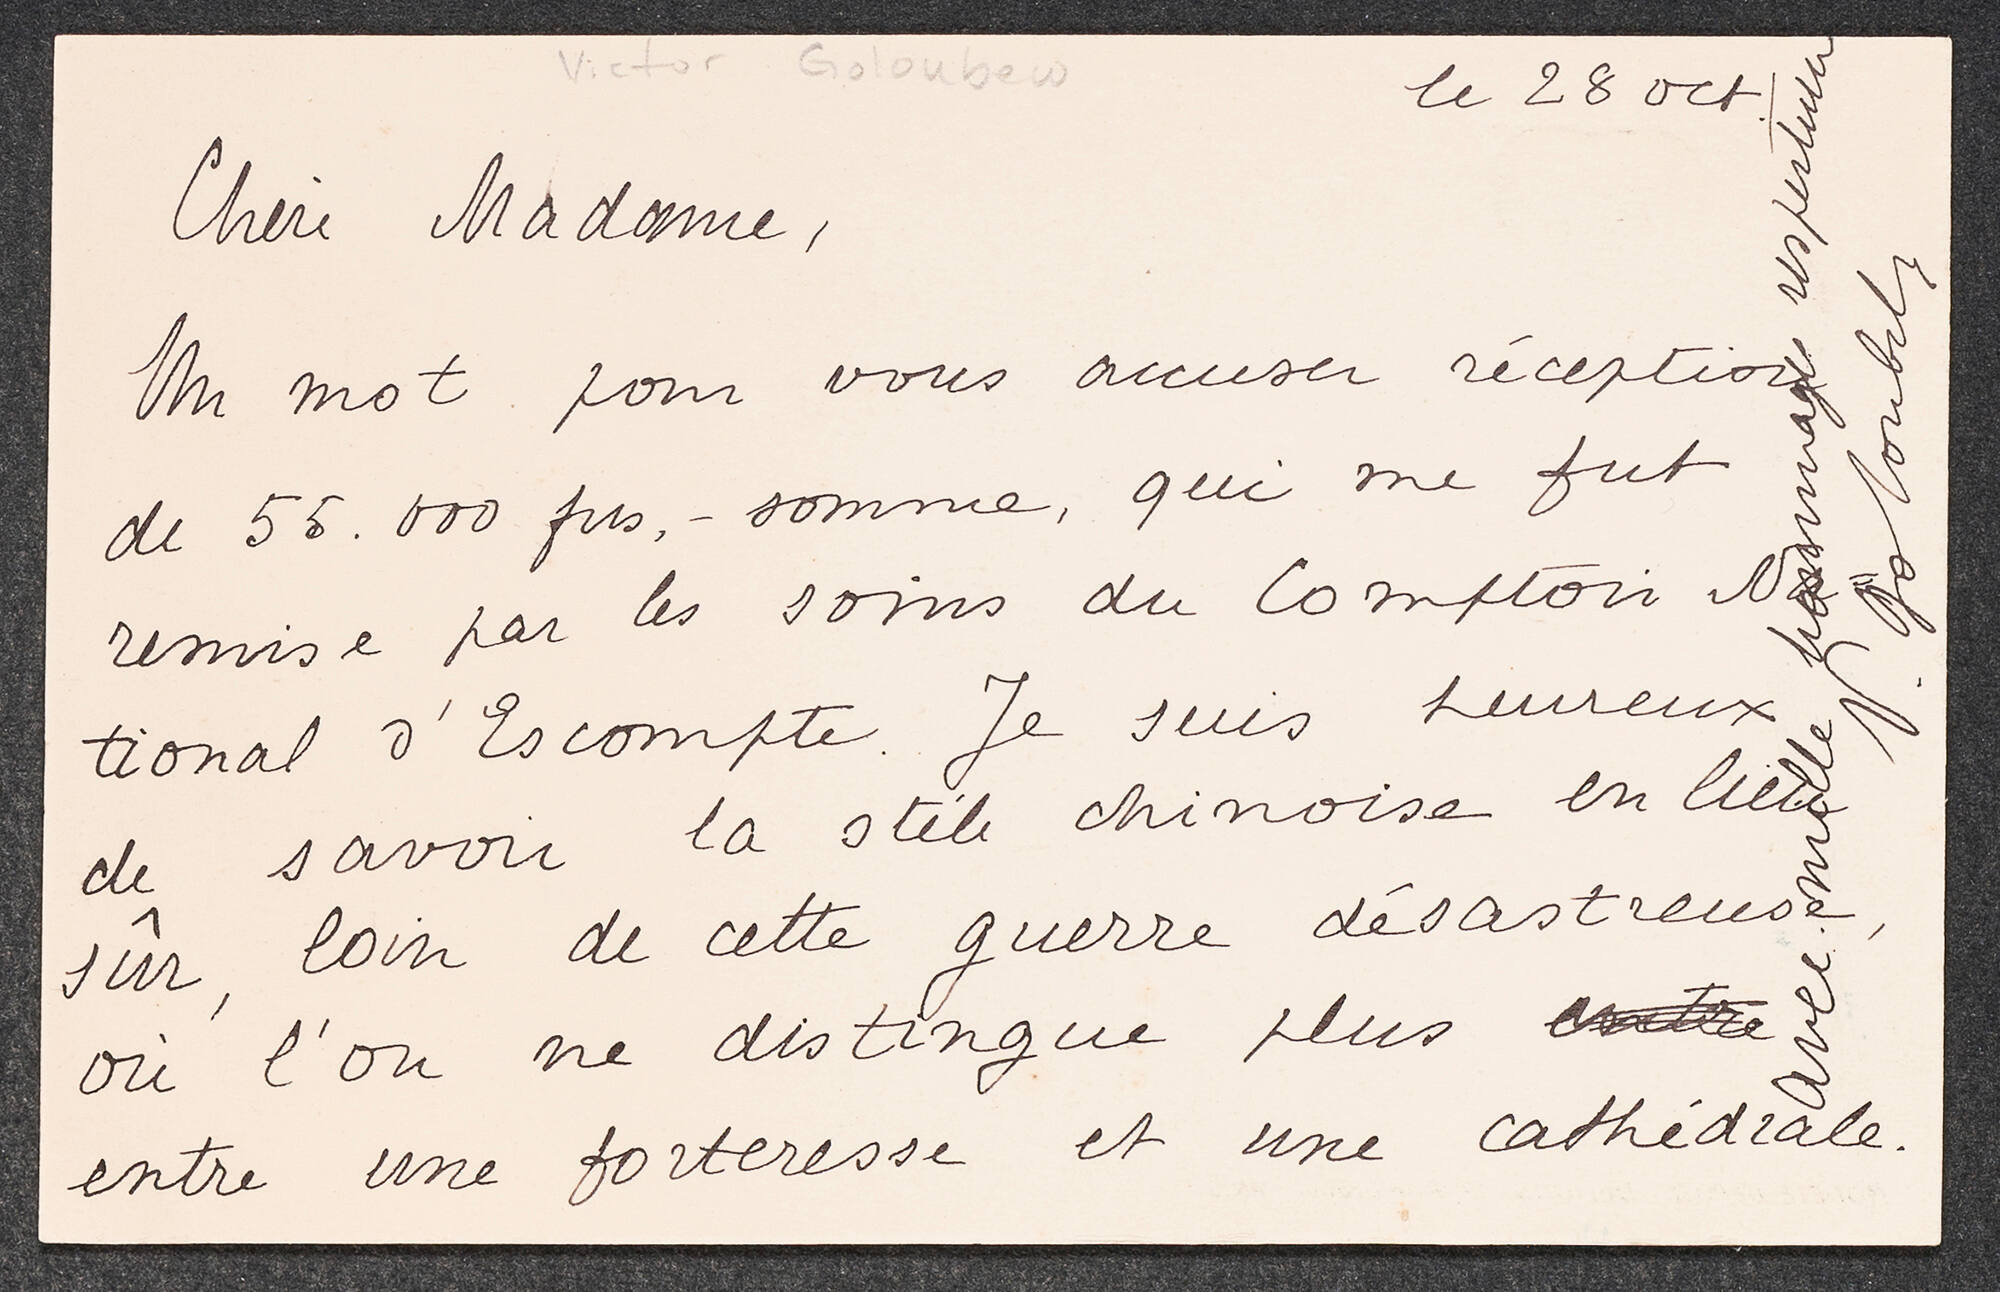 Victor Goloubew
le 28 oct.
Chère Madame,
Un mot pour vous accuser réception
de 55.000 frs, - somme, qui me fut
remise par les soins du Comptoir Na
tional d'Escompte. Je suis heureux
de savoir la stèle chinoise en lieu
sûr, loin de cette guerre désastreuse,
où l'on ne distingue plus entre
entre une forteresse et une cathédrale.
Avec mille hommages respectueux
V. Goloubew